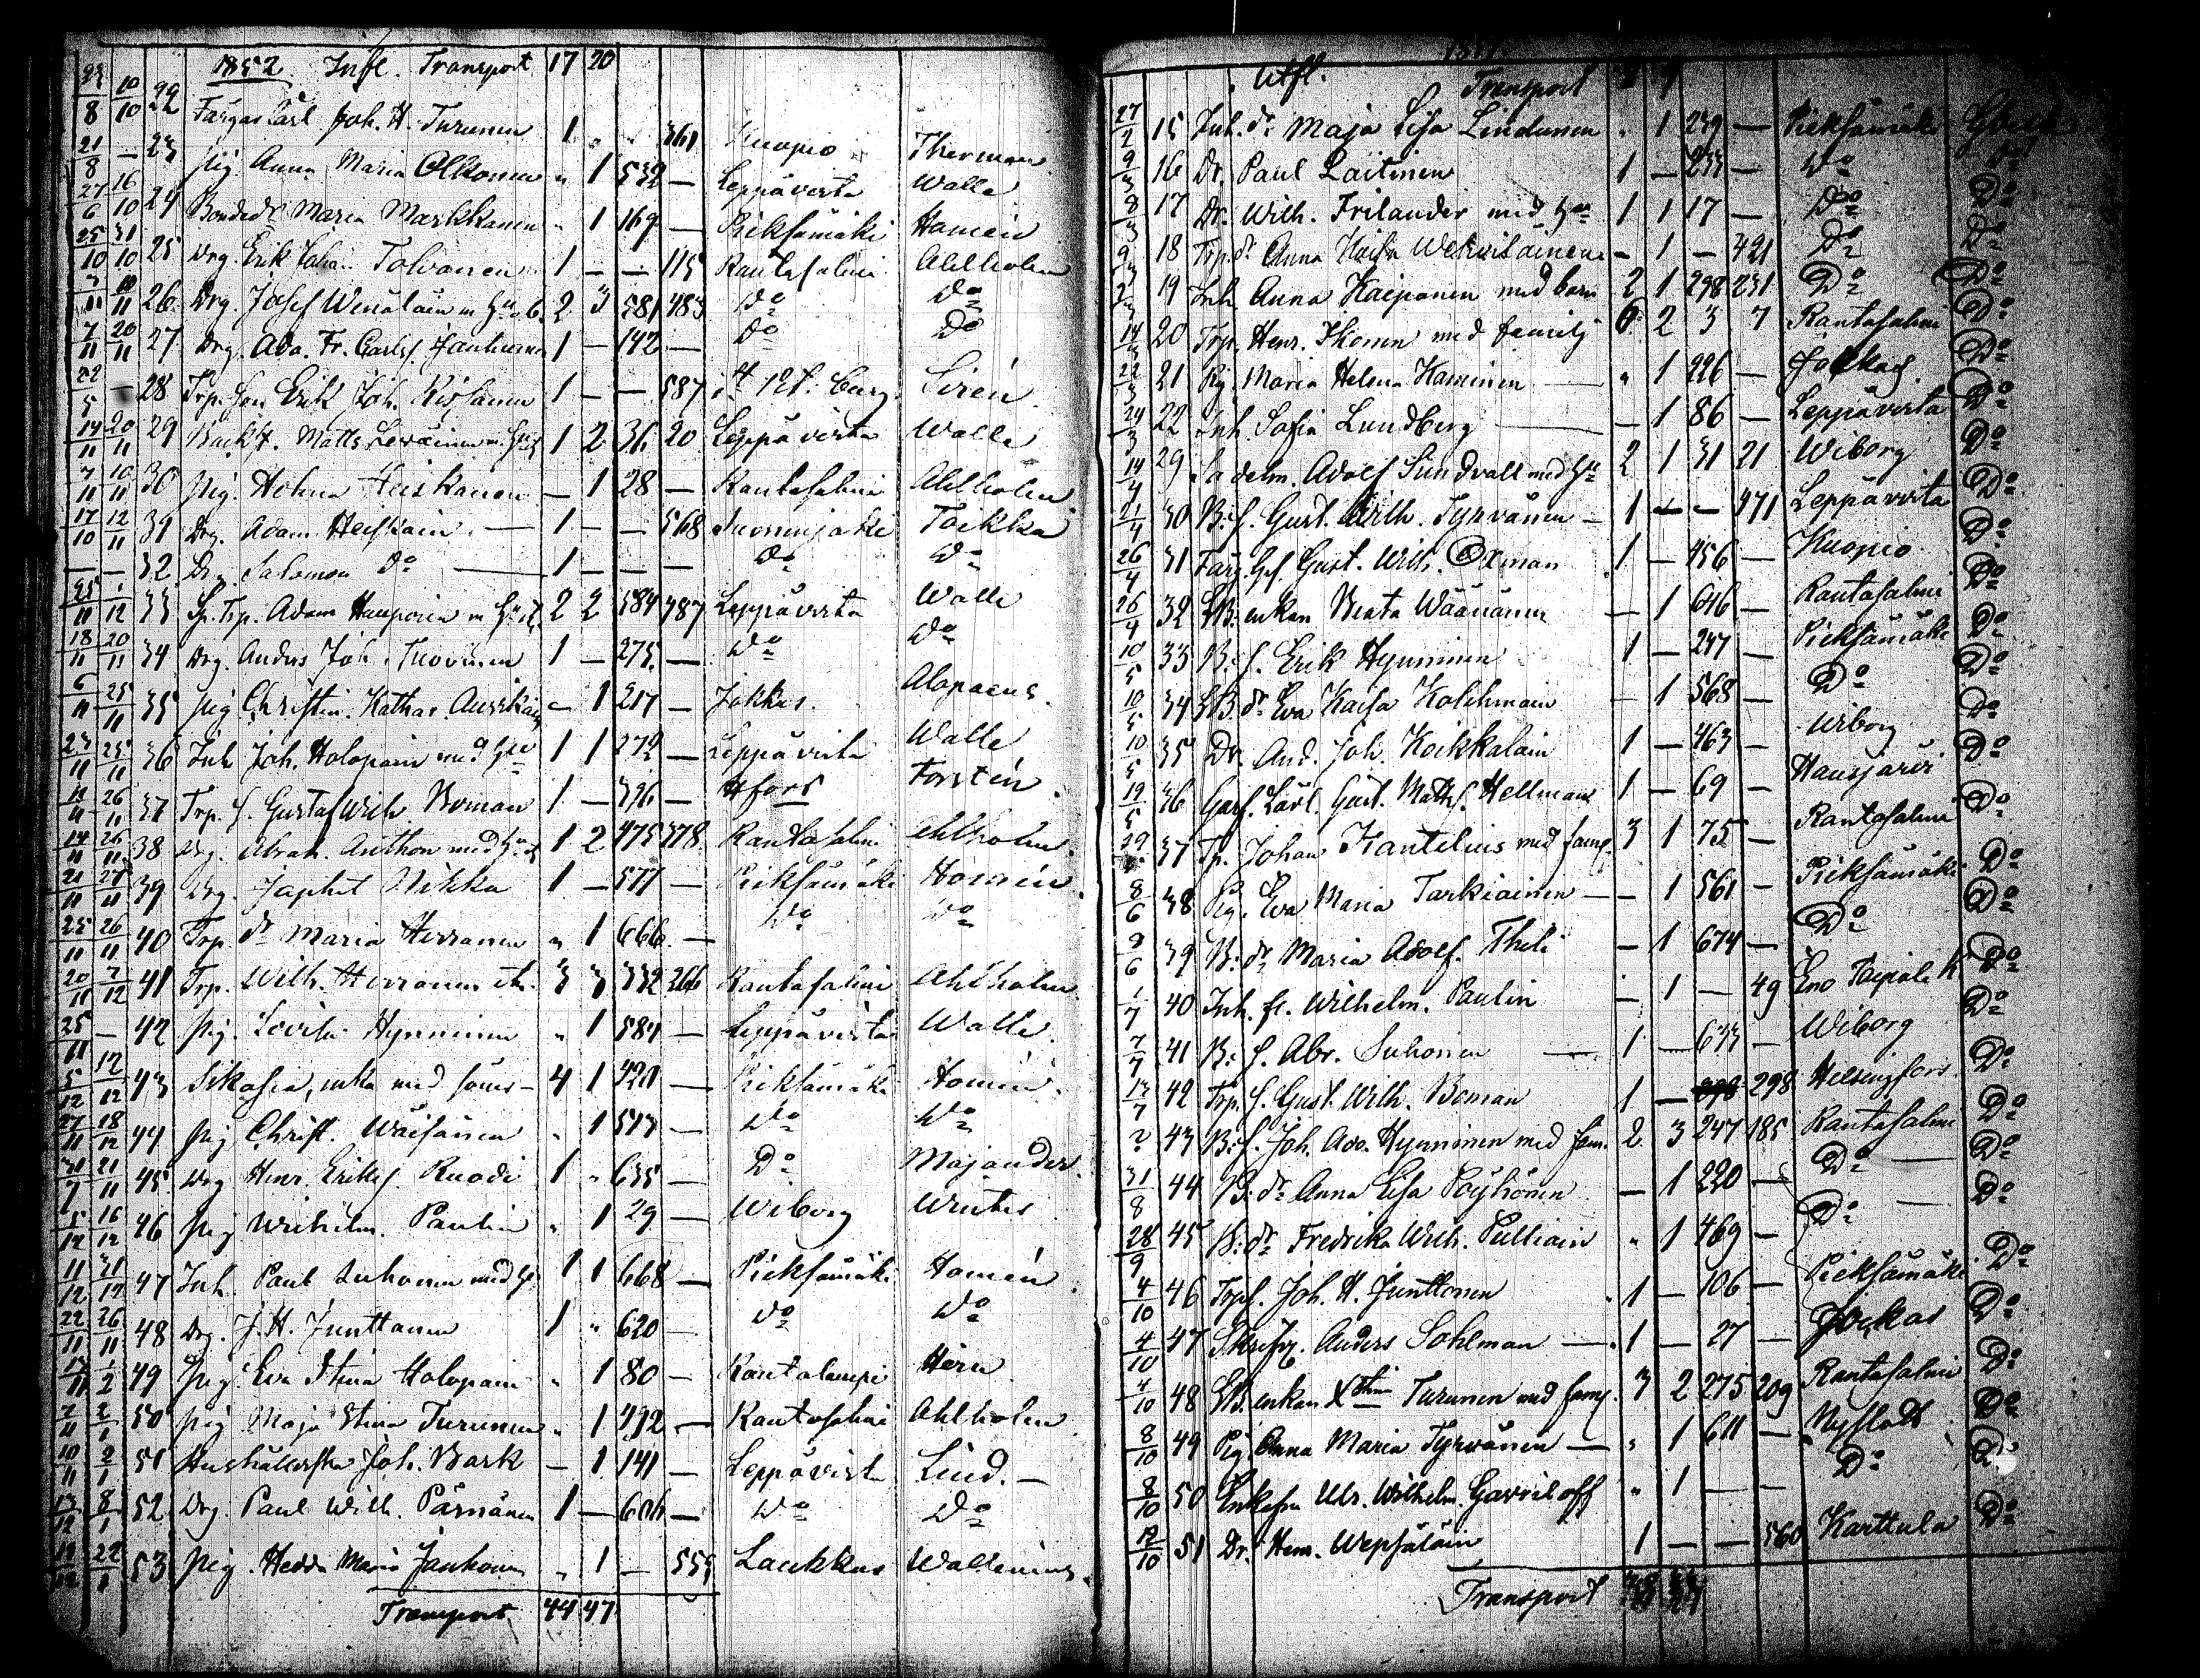 1852 Infl. Transport 17 20
8 10 22 Färgar Lärl Joh. H. Turunen 1 " 361 Kuopio Therman
21/8 — 23 Pig. Anna Maria Olkonen " 1 532 — Leppävirta Walle
27/6 16/10 24 Bonded:r Maria Markkanen " 1 169 — Pieksämäki Homén
25/10 31/10 25 Drg. Erik Johan Tolvanen 1 — — 115 Rantasalmi Ahlholm
26 Drg. Josef Wenäläin m. hu o. b. 2 3 581 483 Do Do
7/11 20/11 27 Drg. Ado. Fr. Carlsf. Janhunen 1 — 142 — Do Do
22/5 28 Trp. Son Erik Joh. Kissanen 1 — — 587 St Pet. burg Sirén
14/11 20/11 29 Matts Leväinen 1 2 36 20 Leppävirta Walle
7/11 10/11 30 Pig. Helena Heiskanen — 1 28 — Rantasalmi Ahlholm
17/10 12/11 31 Drg. Adam Heiskain — 1 — — 568 Suonnejoki Toikka
— — 32 Dr. Salomon Do — 1 — — — Do Do
25/11 1/12 33 Sp. Trp. Adam Hauponen 2 2 584 487 Leppävirta Walle
18/11 20/11 34 Drg. Anders Joh. Tuovinen 1 — 275 — Do Do
6/11 25/11 35 Pig Christin. Kathar. Auvikain — 1 217 — Jokkas. Alopaeus.
23/11 25/11 36 Inh. Joh. Holopain med hu 1 1 272 — Leppävirta Walle
26/11 37 Trp. s. Gustaf Wilh. Boman 1 — 396 — Hfors Forstén.
14/11 26/11 38 Drg. Abrah. Anthon med hu 1 2 475 378 Rantasalmi Ahlholm.
21/11 27/11 39 Drg. Japhet Nikka 1 — 577 — Pieksämäki Homén.
25/11 26/11 40 Trp. dr Maria Herranen " 1 666 — Do Do
20/11 7/12 41 Trp. Wilh. Herranen 3 3 332 266 Rantasalmi Ahlholm
25/11 — 42 Pig. Lovisa Hynninen " 1 584 — Leppävirta Walle
5/12 12/12 43 Sikasia, enka med fam: — 4 1 420 — Pieksämäki Homén.
27/11 18/12 44 Pig Christ. Wäisänen " 1 513 — Do Do
31/7 21/11 45 Drg Henr. Eriksf. Ruodi 1 " 635 — Do Majander.
5/12 16/12 46 Pig Wilhelm. Paulin " 1 29 — Wiborg Winter
11/12 31/12 47 Inh. Paul Suhonen med hu 1 1 668 — Pieksämäki Homén
22/11 26/11 48 Drg. J. H. Junttonen 1 " 620 — Do Do
49 Pig. Eva Stina Holopain " 1 80 — Rantalampi Hörn
7/11 2/1 50 Pig Maja Stina Turunen " 1 492 — Rantasalmi Ahlholm
10/11 2/1 51 Hushållerska Joh. Bark — 1 141 — Leppävirta Lind. —
8/1 52 Drg. Paul Wilh. Pärnänen 1 — 606 — Do Do
22/1 53 Pig. Hedda Maria Janhonen " 1 — 559 Laukkas Wallenius.
Transport 44 47
Utfl. Transport
27/2 15 Inh. dr Maja Lisa Lindunen " 1 239 — Pieksämäki
9/3 16 Dr. Paul Laitinen 1 — 233 — Do Do
8/3 17 Dr. Wilh. Frilander med hu 1 1 17 — Do Do
9/3 18 Trp. dr Anna Kaisa Wehviläinen — 1 — 421 Do Do
19 Inh. Anna Kaiponen med barn 2 1 298 231 Do Do
14/3 20 Trp. Henr. Ihonen med familj 6 2 3 7 Rantasalmi Do
22/3 21 Pig. Maria Helena Kaminen — " 1 226 — Jokkas Do
24/3 22 Inh. Sofia Lundberg — — 1 86 — Leppävirta Do
14/4 29 Sadelm. Adolf Sundvall med hu 2 1 31 21 Wiborg Do
21/4 30 B. s. Gust. Wilh. Tyrvänen — 1 — — 471 Leppävirta Do
26/4 31 Färg. Gesf. Gust. Wilh. Oxman 1 — 456 — Kuopio Do
26/4 32 B: enkan Beata Wäänänen — 1 646 — Rantasalmi Do
10/5 33 B. s. Erik Hynninen 1 — 247 — Pieksämäki Do
10/5 34 B. dr Eva Kaisa Kolehmain — 1 568 — Do Do
10/5 35 Dr. And. Joh. Koikkalain 1 — 463 — Wiborg Do
19/5 36 Garf. Lärl. Gust. Mathf. Hellman 1 — 69 — Hausjärvi Do
29 37 Tp. Johan Kantelius med famj. 3 1 75 — Rantasalmi Do
8/6 38 Pig. Eva Maria Tarkiainen — — 1 561 — Pieksämäki Do
8/6 39 B. dr Maria Adolf. Theli — 1 674 — Do Do
1/7 40 Inh. fl. Wilhelm. Paulin — 1 — 49 Eno Do
7/7 41 B. s. Abr. Suhonen — 1 — 633 — Wiborg Do
13/7 42 Trp. s. Gust. Wilh. Boman 1 — 298 Helsingfors Do
? 43 B. s. Joh. Ado. Hynninen med fam. 2 3 247 185 Rantasalmi Do
31/8 44 B. dr Anna Lisa Pöyhönen — 1 220 — Do — Do
28/9 45 B. dr Fredrika Wilh. Pulliain " 1 469 — Do — Do
4/10 46 Torpf. Joh. H. Junttonen 1 — 106 — Pieksämäki Do
4/10 47 Anders Sohlman — 1 — 27 — Jockas Do
4/10 48 B. enkan Xstina Turunen med famj. 3 2 275 209 Rantasalmi Do
8/10 49 Pig. Anna Maria Tyrvänen — " 1 611 — Nystadt Do
8/10 50 Enkefru Ulr. Wilhelm. Gavriloff " 1 — — Do Do
12/10 51 Dr. Henr. Wepsäläin 1 — — 560 Karttula Do
Transport